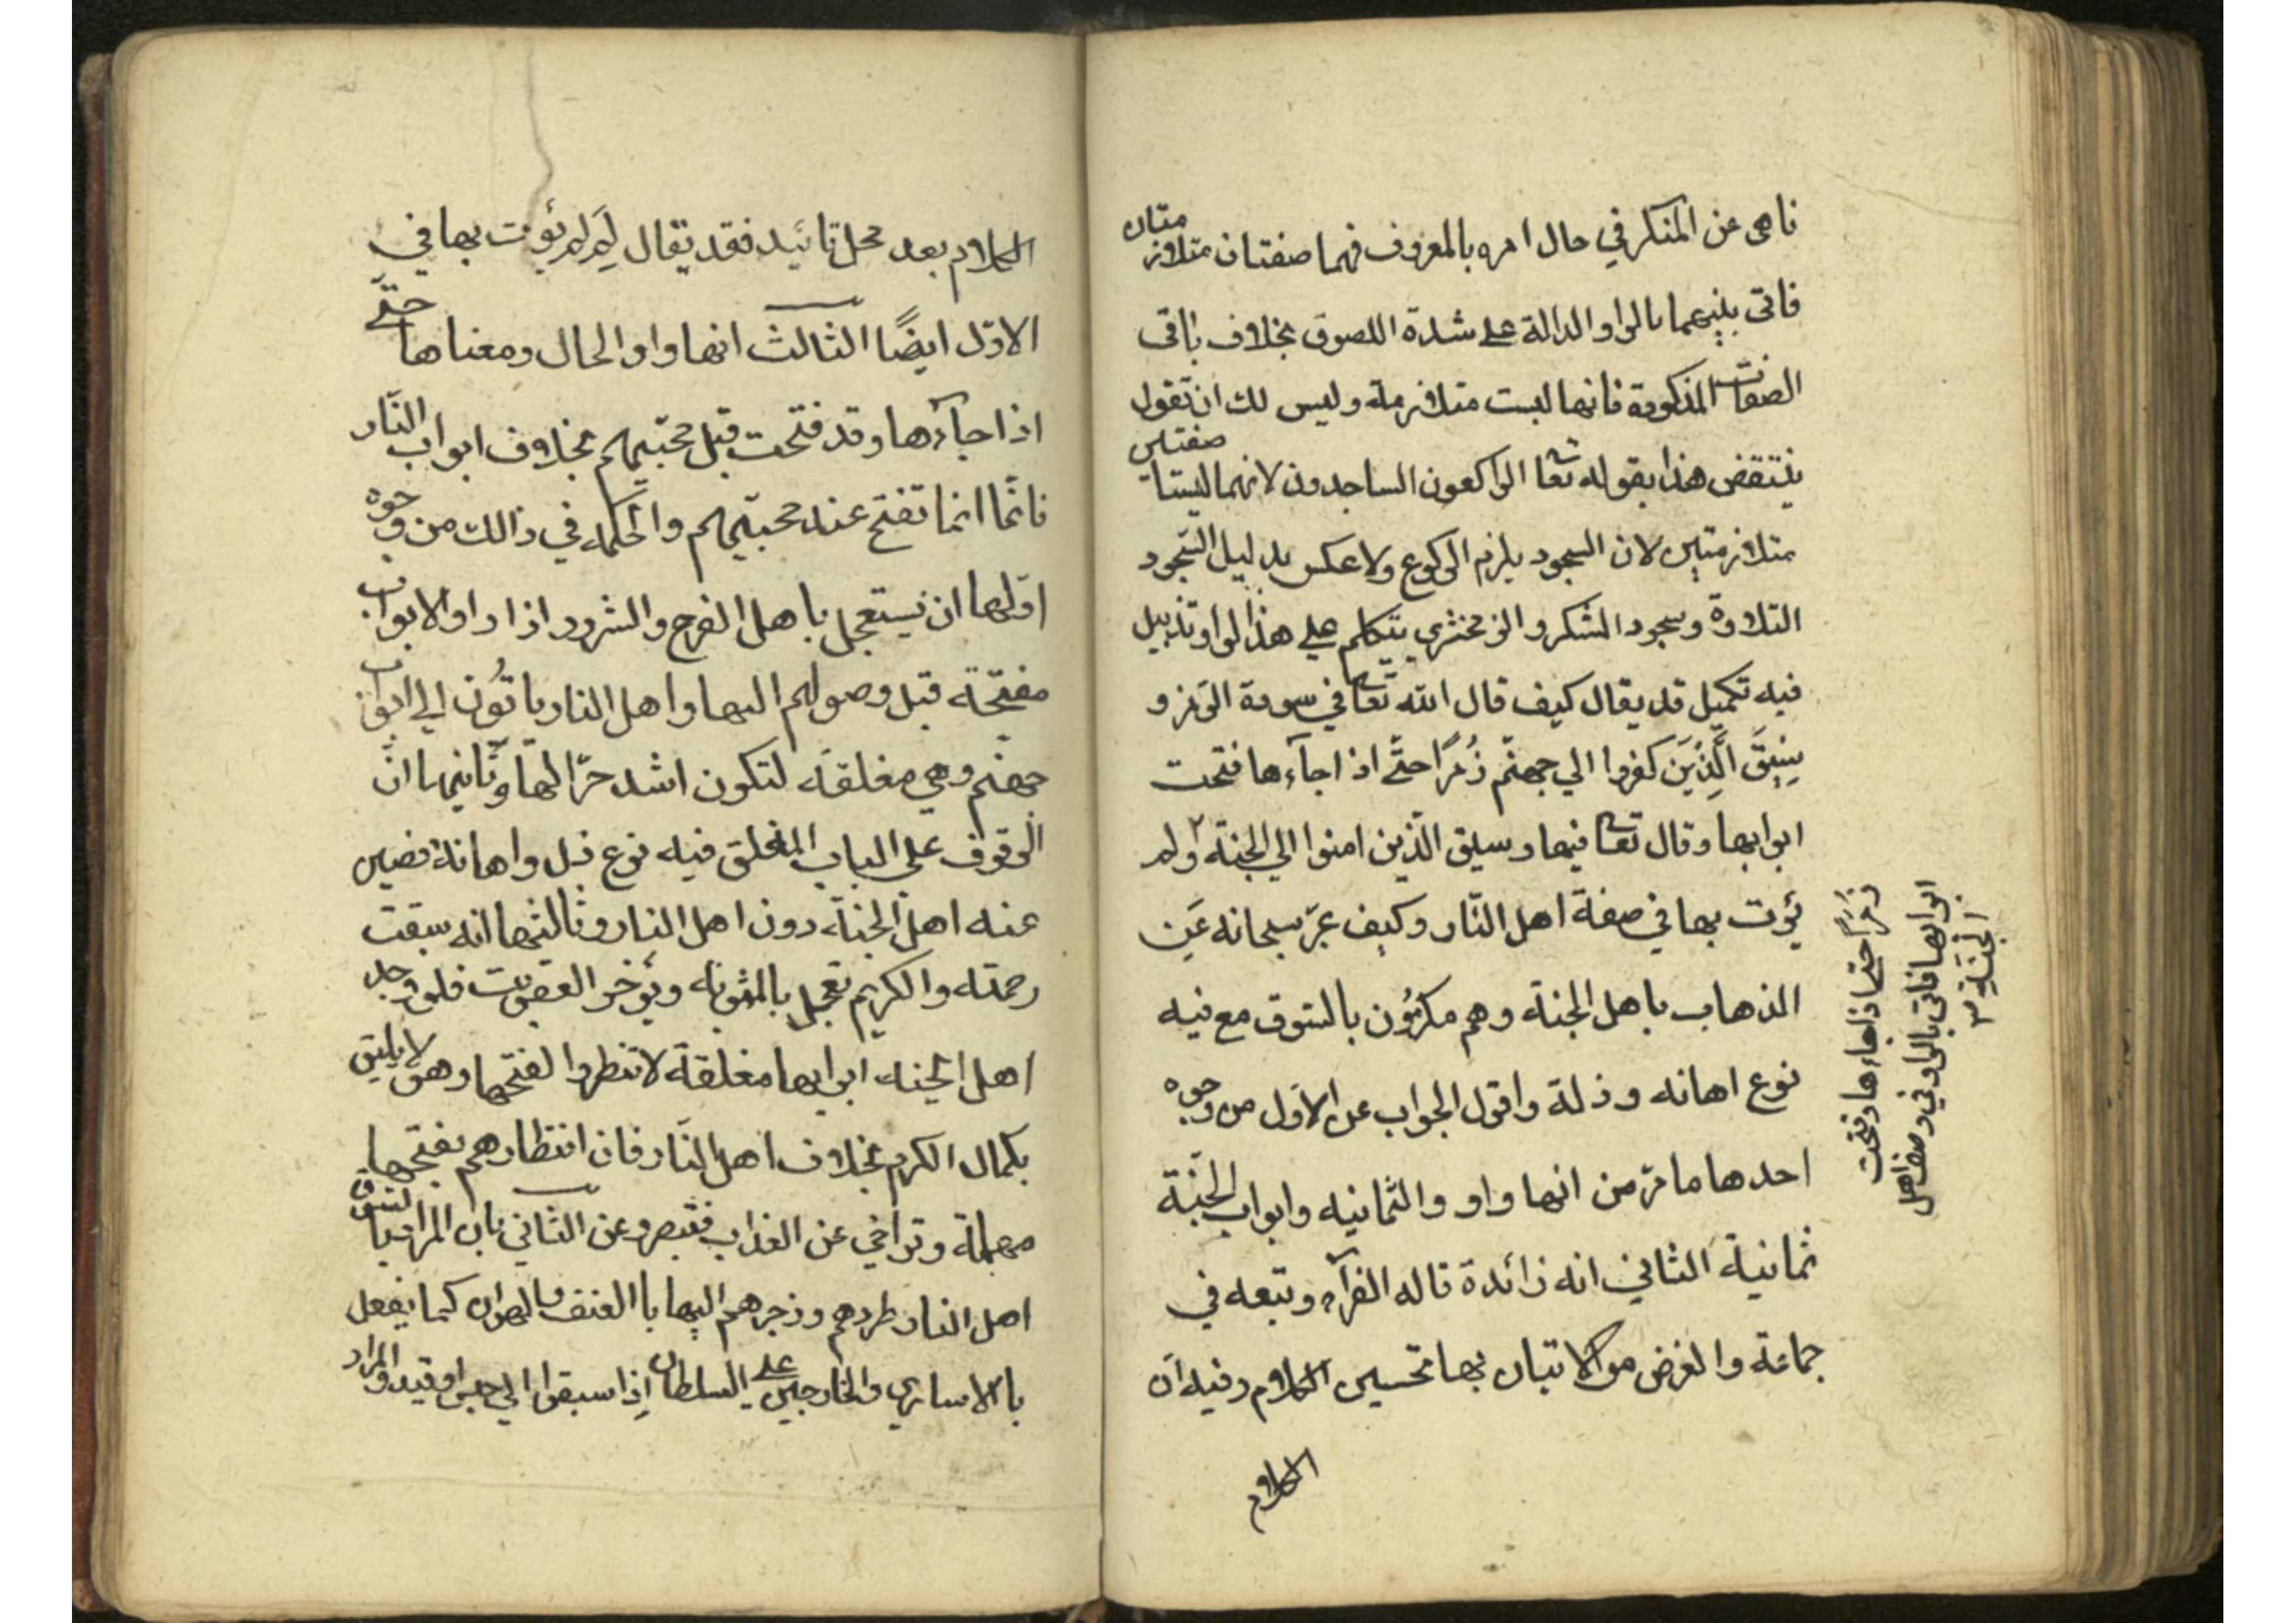 ناهى عن المنكر في حال امره بالمعروف فهما صفتان متلازمتان
فاتى بينهما بالواو الدالة على شدة اللصوق بخلاف باقى
الصفات المذكورة فانها ليست متلازمة وليس لك ان تقول
ينتقض هذا بقوله تعا الراكعون الساجدون لانهما ليستا صفتين
متلازمتين لان السجود يلزم الركوع ولا عكس بدليل السجود
التلاوة وسجود الشكر والزمخشري يتكلم على هذا الواو تذييل
فيه تكميل قد يقال كيف قال الله تعا في سورة الزمر و
سِيقَ الَّذِيَن كفروا الي جهنّم زُمرًا حتَّى اذا جآءها فتحت
ابوابها وقال تعا فيها وسيق الّذين امنوا الي الجنة ولم
يؤت بها في صفة اهل النّار وكيف عبّر سبحانه عَن
الذهاب باهل الجنة وهم مكرمُون بالسوق مع فيه
نوع اهانه وذلة واقول الجواب عن الاوّل من وجوه
احدها ما مرّ من انها واو والثمانيه وابواب الجَنّة
ثمانية الثاني انه زائدة قاله الفرآء وتبعه في
جماعة والغرض من الاتيان بها تحسين الكلام وفيه ان
الكلام
زُمَرًا حتى اذا جاءها وفتحت
ابوابها فاتى بالواو في وصف اهل
الجَنّة ٣
الكلام بعد محل تائيد فقد يقال لِمَ لم يؤت بها في
الاوّل ايضًا الثالث انها واو الحال ومعناها حتّى
اذا جآءها وقد فتحت قبل مجيّهم بخلاف ابواب النّار
فانّها انما تفتح عند مجيّهم والحكمه في ذالك من وجوه
اوّلها ان يستعجل باهل الفرح والسّرور اذا راوا الابواب
مفتّحة قبل وصولهم اليها واهل النار ياتُون الي ابواب
جهنم وهي مغلقة لتكون اشد حرّا لها وثانيها انّ
الوقوف على الباب المغلق فيه نوع ذل واهانة فصين
عنه اهل الجنة دون اهل النار وثالثها انه سبقت
رحمته والكريم تعجل بالمثوبة ويؤخر العقوبت فلو وجد
اهل الجنه ابوابها مغلقة لانتظروا لفتحها وهو لا يليق
بكمال الكرم بخلاف اهل النّار فان انتظارهم بفتحها
مهملة وتراخي عن العذاب فقيصر وعن الثاني بان المراد بالسّوق
اهل النار طردهم وزجرهم اليها باالعنف والهوان كما يفعل
باالاسارى والخارجين على السلطان اِذا سيقوا الي حبس او قيد والمراد